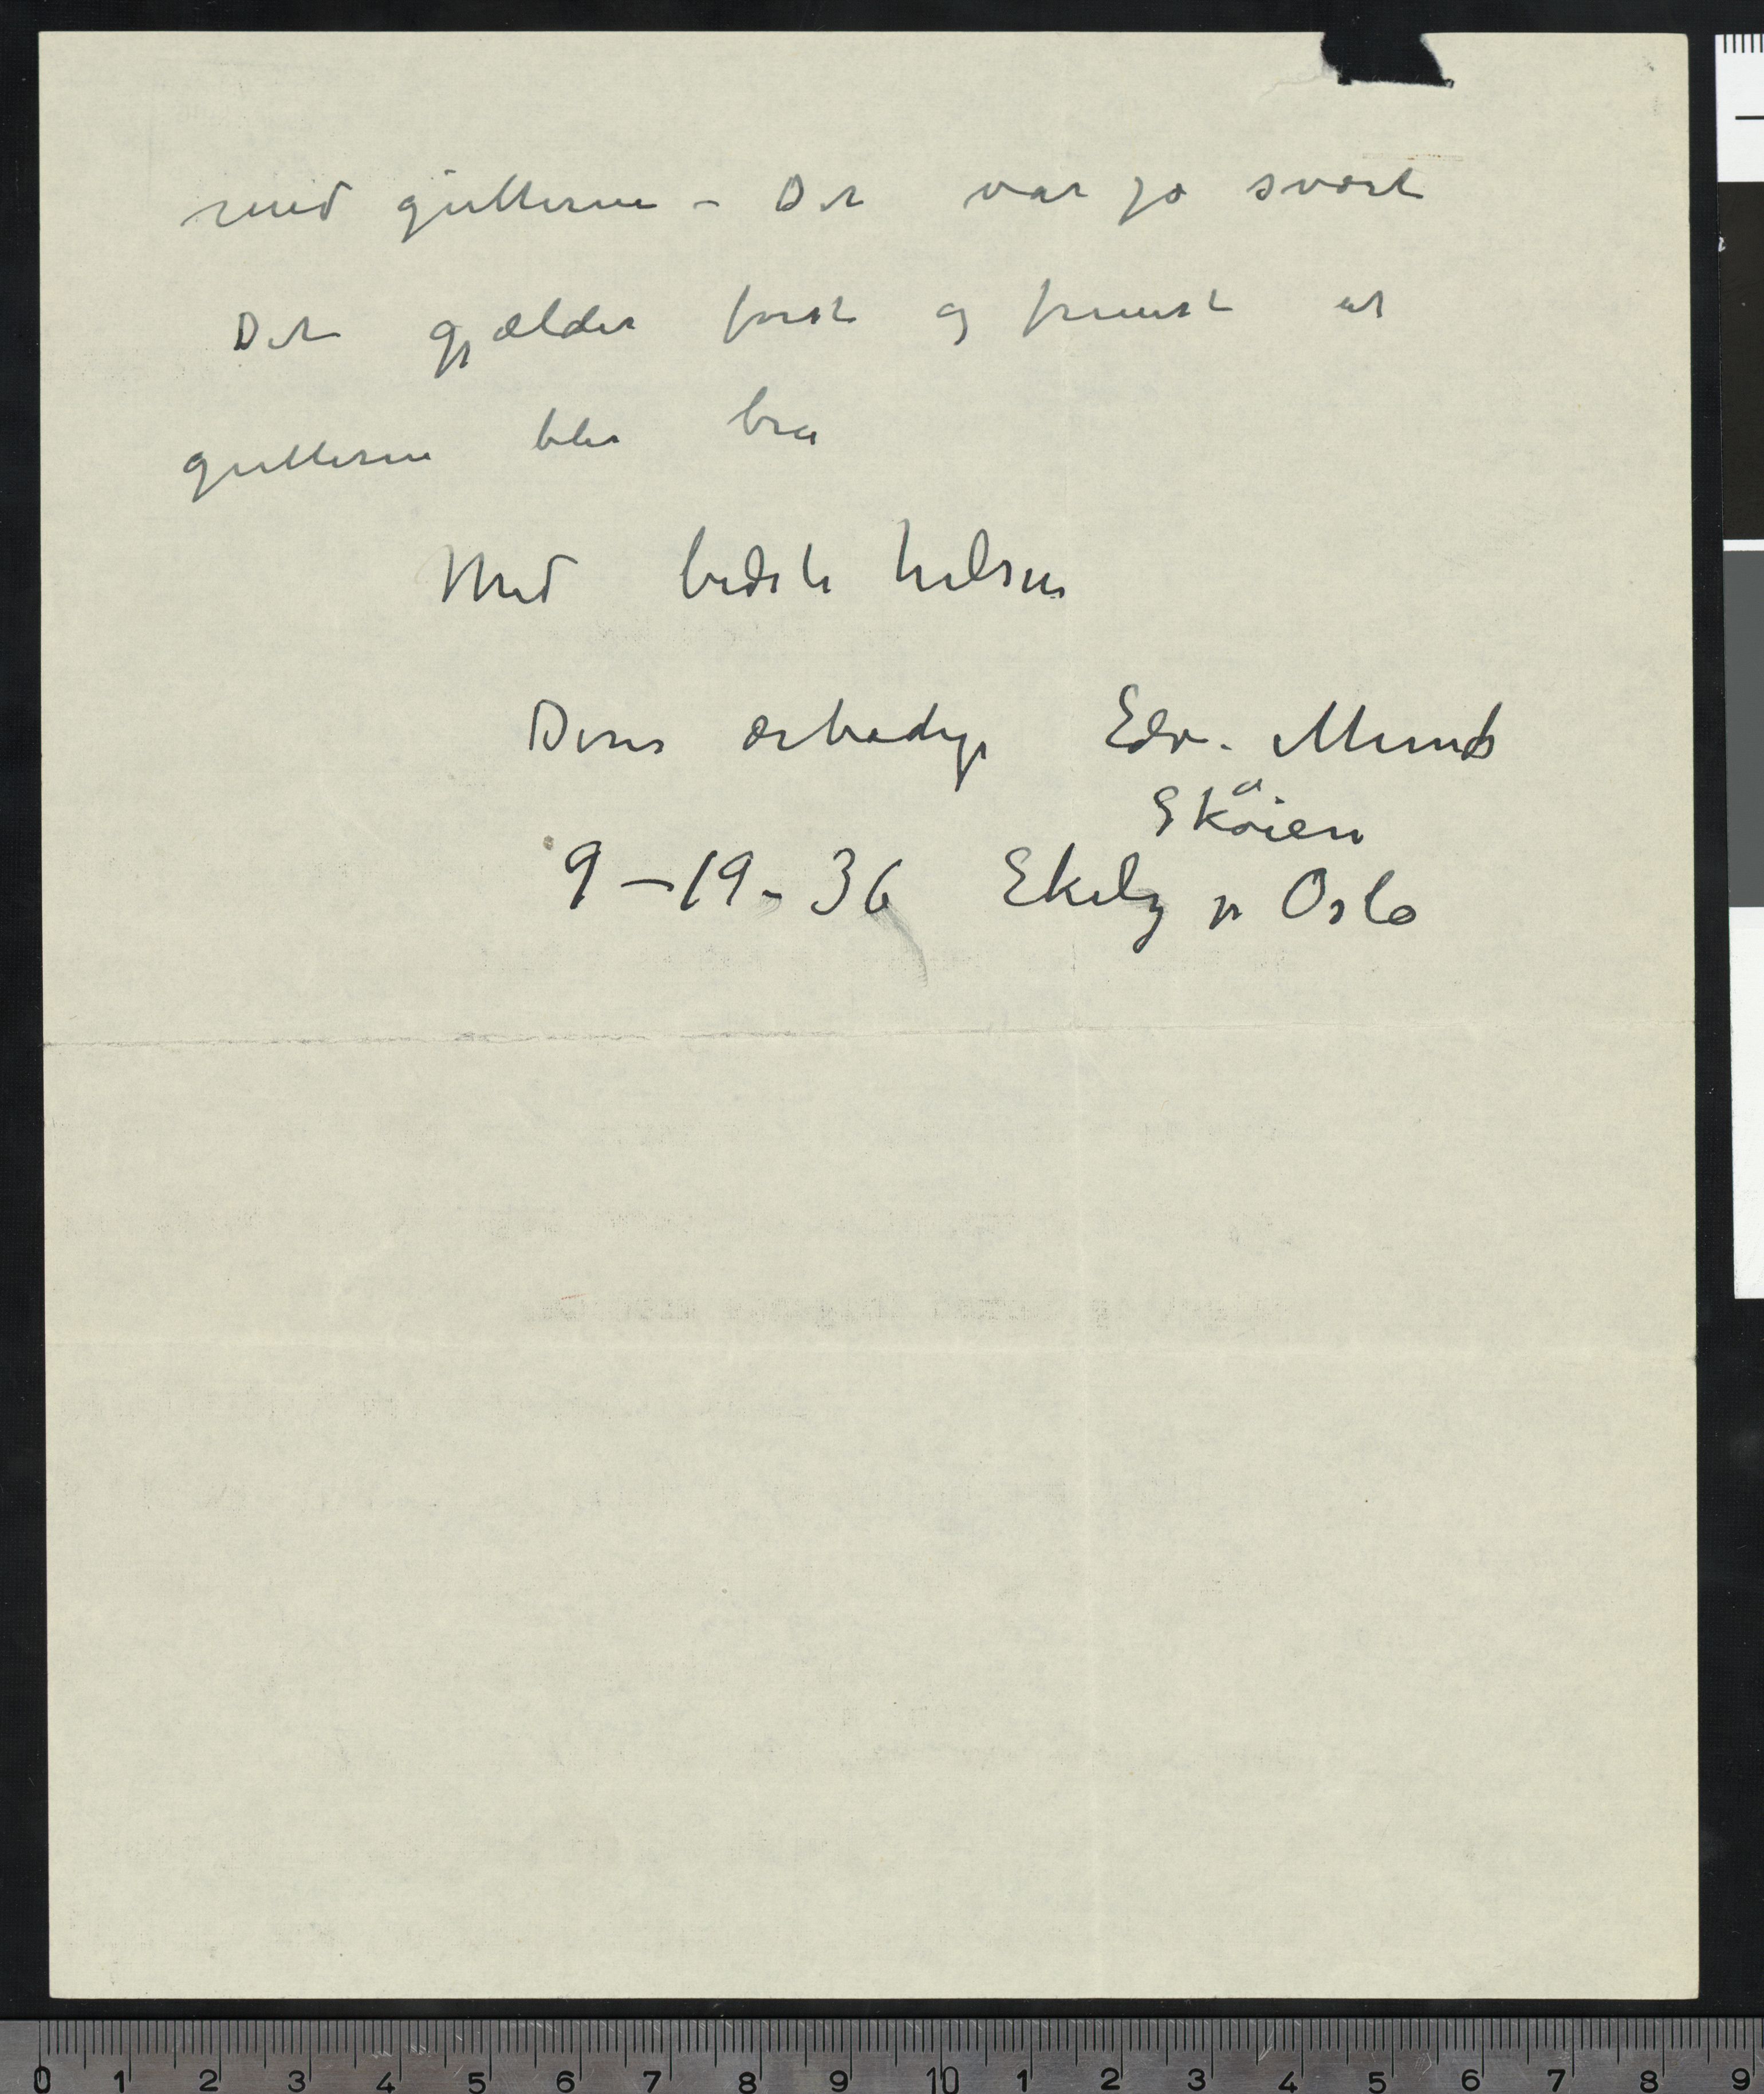 med gutterne – Det var jo svært
Det gjælder først og fremst at
gutterne blir bra
Med bedste hilsen
Deres ærbødige Edv. Munch
Skøien
9–19–36 Ekely pr Oslo
0 1 2 3 4 5 6 7 8 9 10 1 2 3 4 5 6 7 8 9